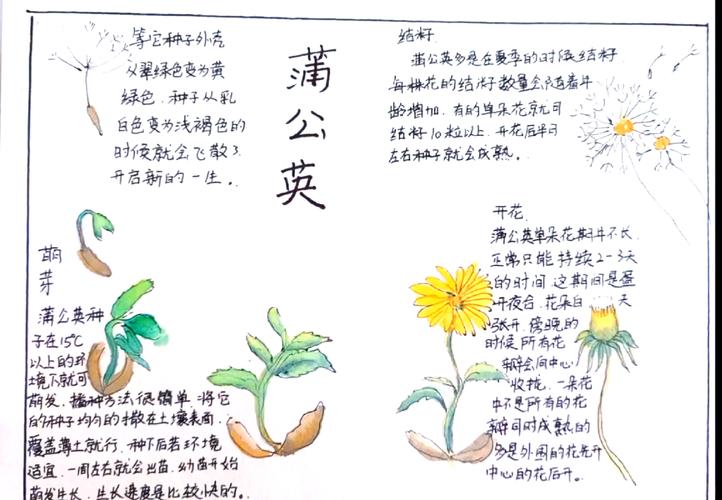 蒲公英
等它种子外壳
从翠绿色变为黄
绿色，种子从乳
白色变为浅褐色的
时候就会飞散了，
开启新的一生。
结籽
蒲公英多是在夏季的时候结籽
每株花的结籽数量会随着年
龄增加，有的单朵花就可
结籽10粒以上，开花后半月
左右种子就会成熟。
萌
芽
蒲公英种
子在15℃
以上的环
境下就可
萌发，播种方法很简单，将它
的种子均匀的撒在土壤表面，
覆盖薄土就行，种下后若环境
适宜，一周左右就会出苗，幼苗开始
萌发生长，生长速度是比较快的。
开花
蒲公英单朵花期并不长，
正常只能持续2-3天
的时间，这期间是昼
开夜合，花朵白天
张开，傍晚的
时候所有花
瓣会向中心
收拢，一朵花
中不是所有的花
瓣同时成熟的
多是外围的花先开
中心的花后开。